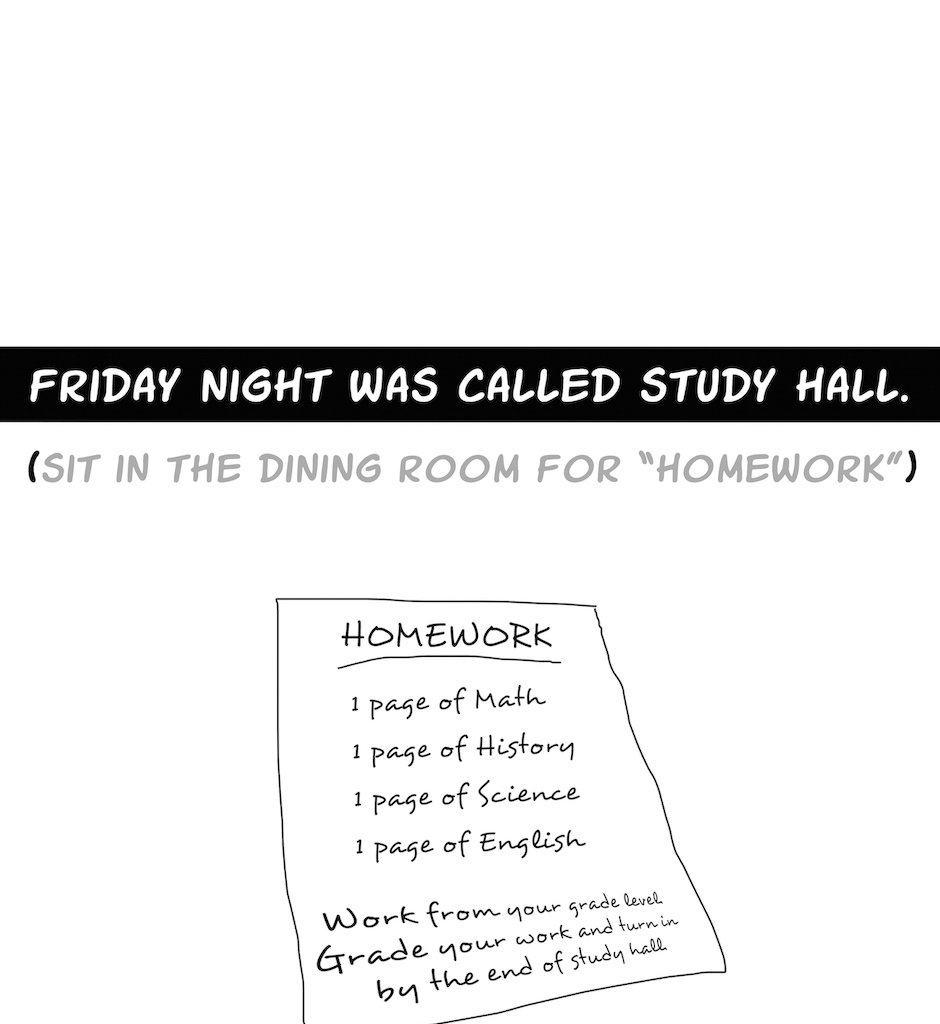 FRIDAY NIGHT WAS CALLED STUDY HALL.
(SIT IN THE DINING ROOM FOR "HOMEWORK")
HOMEWORK
1 page of Math
1 page of History
1 page of Science
1 page of English
Work from your grade level
Grade your work and turn in
by the end of study hall